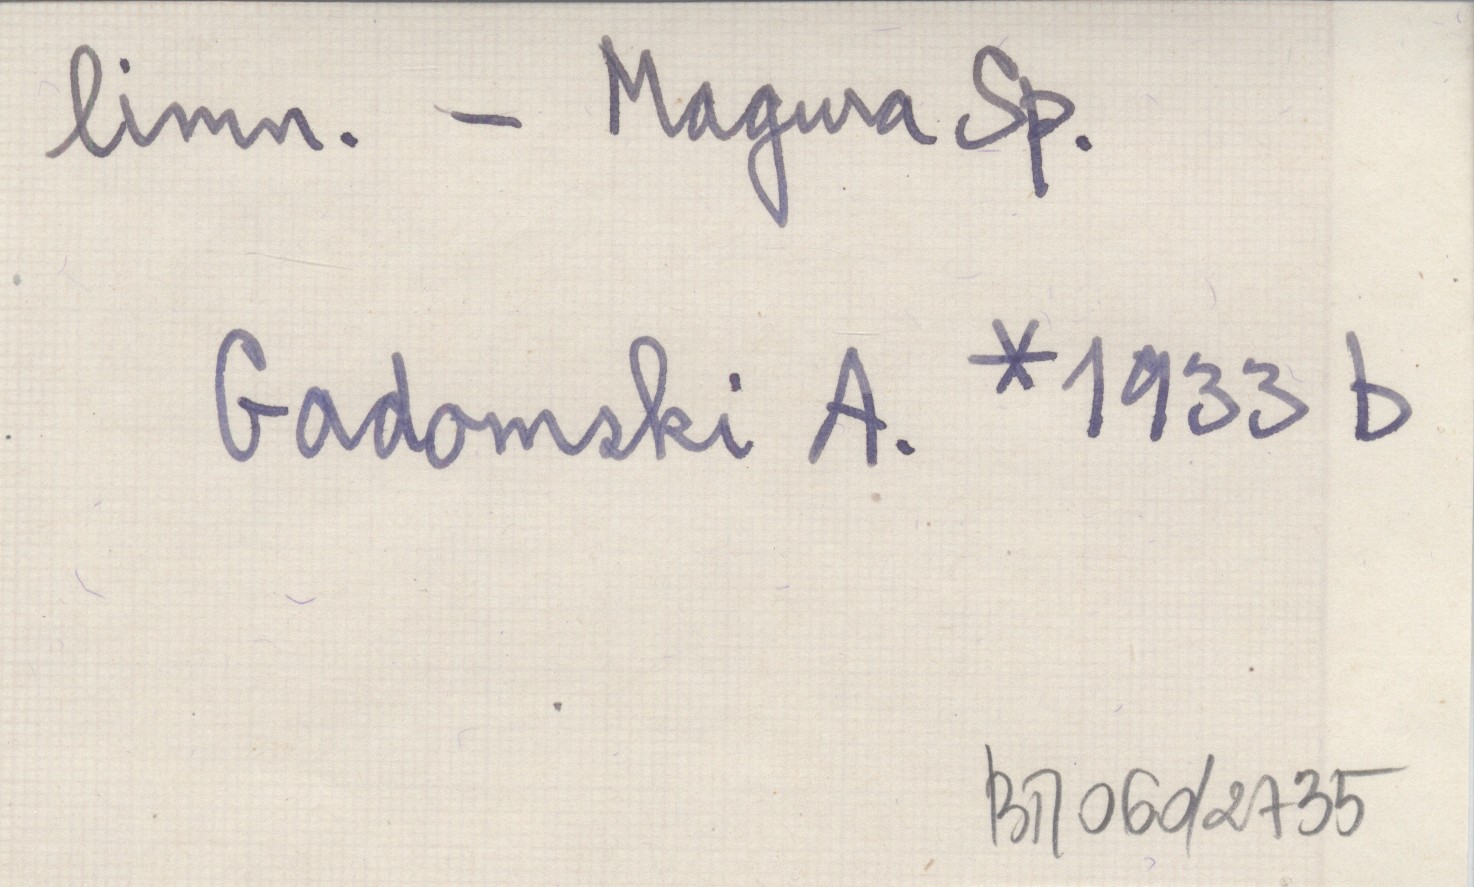 limn. – Magura Sp.
Gadomski A. *1933 b
060/2735